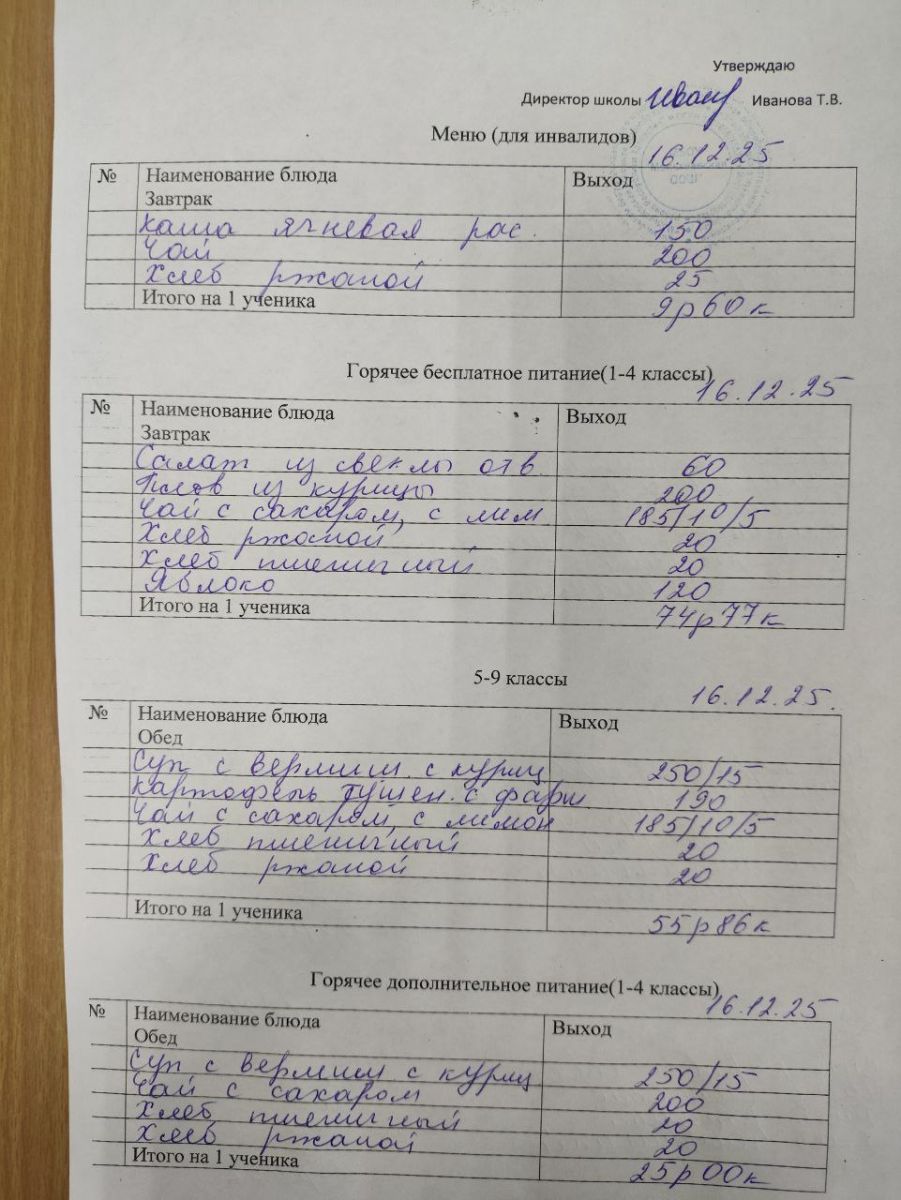 Утверждаю
Директор школы Иванова Т.В.
Меню (для инвалидов)
16.12.25
№ Наименование блюда Выход
Завтрак
Каша ячневая рас. 150
Чай 200
Хлеб ржаной 25
Итого на 1 ученика 9р60к
Горячее бесплатное питание(1-4 классы)
16.12.25
№ Наименование блюда Выход
Завтрак
Салат из свеклы отв 60
Плов из курицы 200
Чай с сахаром, с лим 185/10/5
Хлеб ржаной 20
Хлеб пшеничный 20
Яблоко 120
Итого на 1 ученика 74р77к
5-9 классы
16.12.25.
№ Наименование блюда Выход
Обед
Суп с вермиш. с куриц 250/15
Картофель тушен. с фарш 190
Чай с сахаром, с лимон 185/10/5
Хлеб пшеничный 20
Хлеб ржаной 20
Итого на 1 ученика 55р86к
Горячее дополнительное питание(1-4 классы)
16.12.25
№ Наименование блюда Выход
Обед
Суп с вермиш с куриц 250/15
Чай с сахаром 200
Хлеб пшеничный 20
Хлеб ржаной 20
Итого на 1 ученика 25р00к